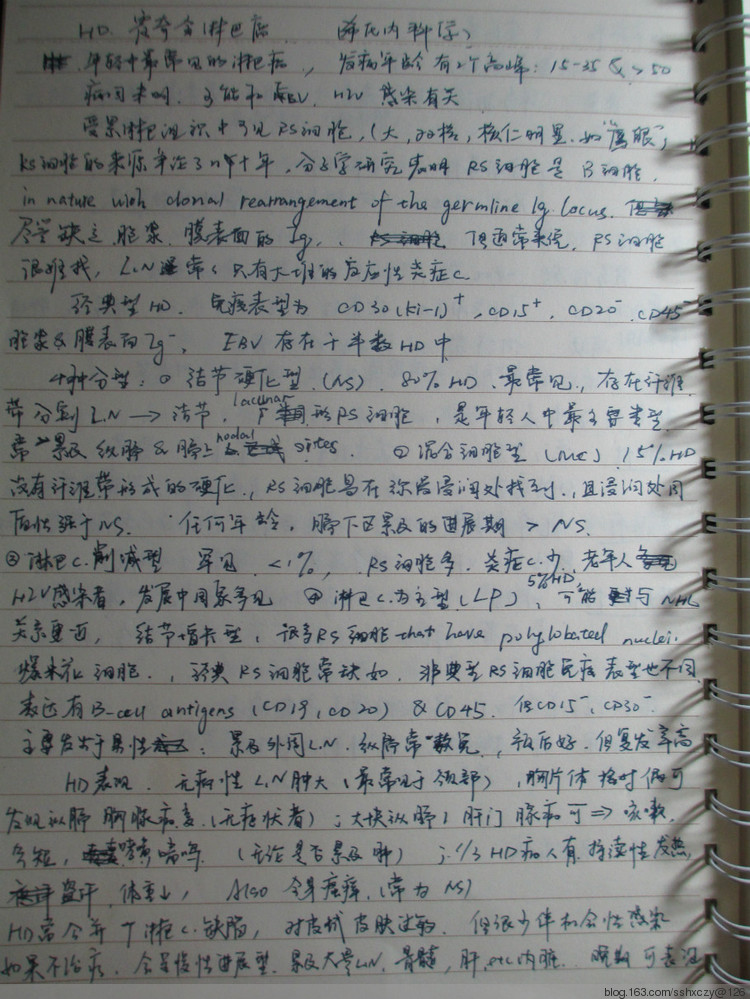 HD. 霍奇金淋巴瘤 (希氏内科学)
年轻中最常见的淋巴瘤, 发病年龄有2个高峰: 15-35 & >50
病因未明. 可能和 EBV. HZV 感染有关
受累淋巴组织中可见RS细胞, (大, 双核, 核仁明显. 如"鹰眼")
RS细胞的来源争论了几十年, 分子学研究表明 RS细胞是 B细胞.
in nature with clonal rearrangement of the germline Ig locus.
尽管缺乏 胞浆. 膜表面的 Ig, 但通常来说, RS细胞
很难找, L.N 常常只有大堆的反应性炎症c.
经典型 HD. 免疫表型为 CD30(Ki-1)+, CD15+, CD20-. CD45-
胞浆&膜表面Ig-. EBV 存在于半数 HD 中
4种分型: ① 结节硬化型 (NS). 80% HD. 最常见., 存在纤维
带分割 L.N → 结节. lacunar 形RS细胞, 是年轻人中最主要类型
常累及 纵膈 & 膈上 nodal sites. ② 混合细胞型 (MC) 15% HD
没有纤维带形成的硬化., RS细胞易在弥漫浸润处找到., 且浸润处同
质性强于NS. 任何年龄, 膈下区累及的进展期 > NS.
③ 淋巴c.削减型 罕见. <1%, RS细胞多. 炎症c.少. 老年人
HZV感染者, 发展中国家多见 ④ 淋巴c.为主型 (LP), 5% HD 可能 与 NHL
关系更近, 结节增长型, 很多RS细胞 that have polylobated nuclei.
爆米花细胞., 经典 RS细胞常缺如. 非典型RS细胞免疫表型也不同
表达有B-cell antigens (CD19, CD20) & CD45. 但CD15-, CD30-.
主要发生于男性; 累及外周L.N. 纵膈常豁免, 预后好. 但复发率高
HD表现. 无痛性 L.N 肿大 (最常见于颈部), 胸片体检时偶可
发现纵膈 胸腺病变. (无症状者); 大块纵膈 肝门 腺病可 ⇒ 咳嗽.
气短, 喘鸣. (无论是否累及肺); 1/3 HD病人有 持续性发热
盗汗. 体重↓, Also 全身瘙痒. (常为 NS)
HD常合并 T淋巴c.缺陷, 对皮试皮肤过敏. 但很少伴机会性感染
如果不治疗. 会呈慢性进展型. 累及大量L.N, 骨髓, 肝, etc 内脏. 晚期可表现
blog.163.com/sshxczy@126